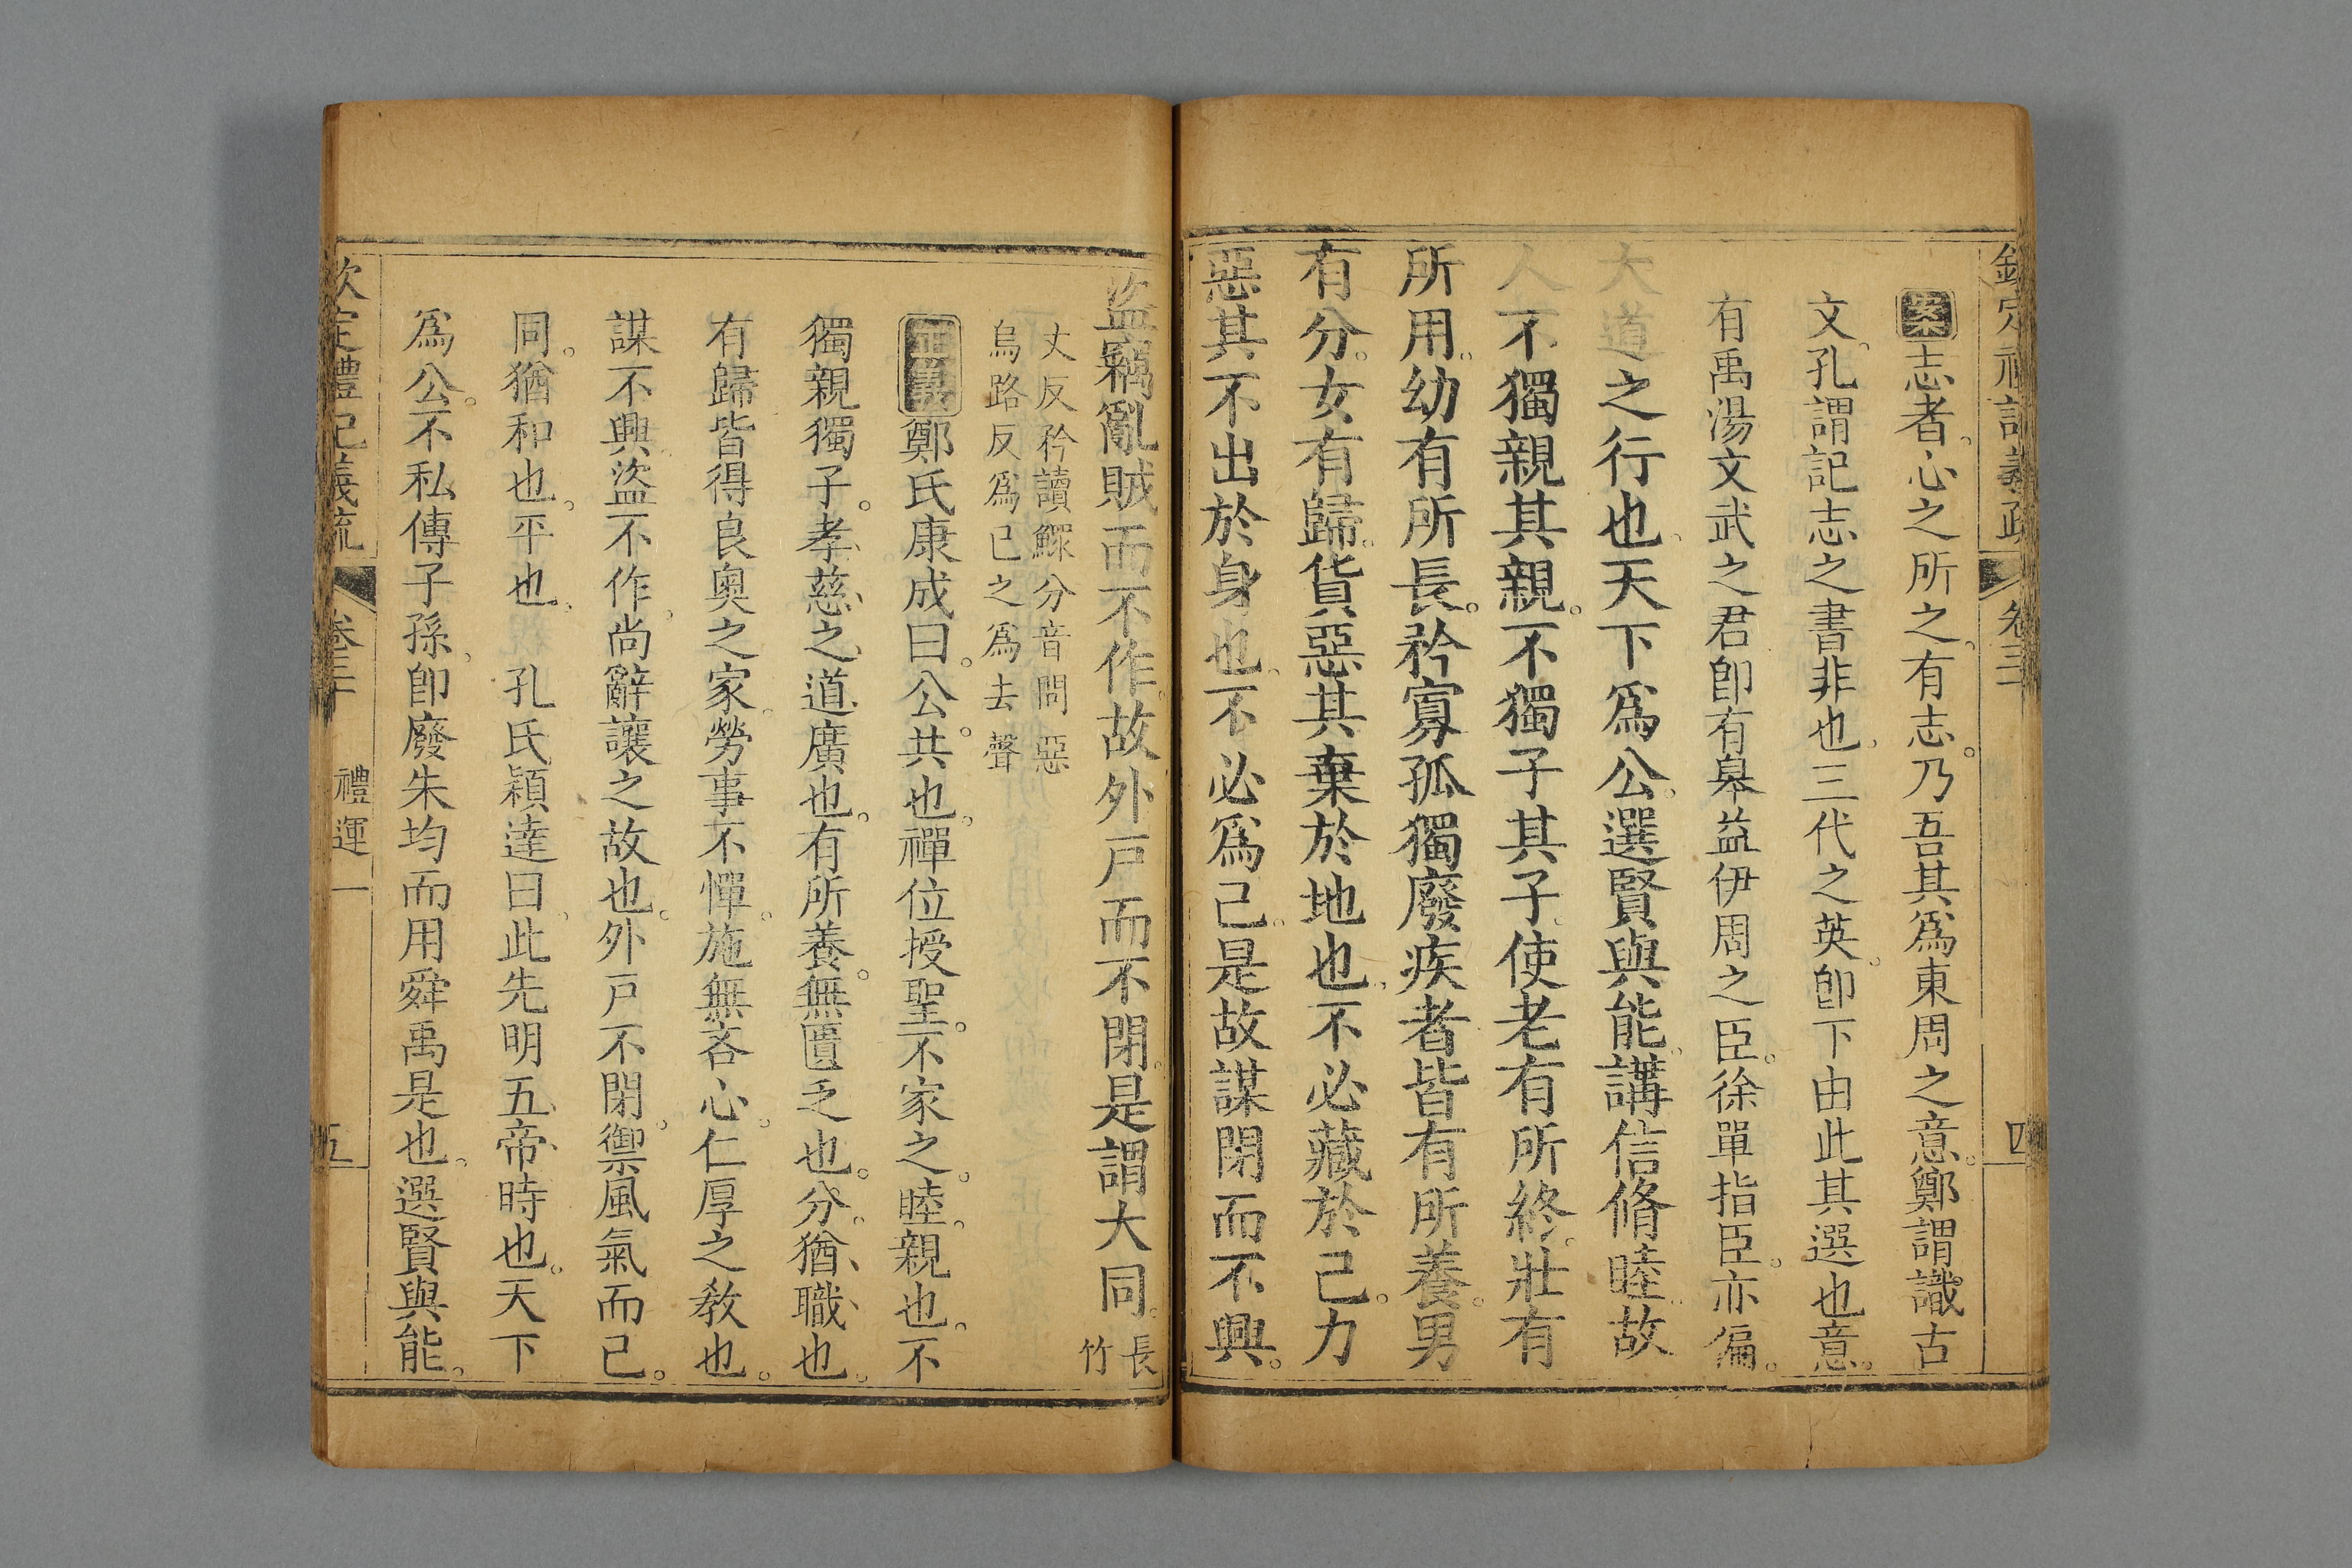 欽定禮記義疏 卷三 四
案志者心之所之有志乃吾其爲東周之意鄭謂識古
文孔謂記志之書非也三代之英卽下由此其選也意
有禹湯文武之君卽有皋益伊周之臣徐單指臣亦偏
大道之行也天下爲公選賢與能講信脩睦故
人不獨親其親不獨子其子使老有所終壯有
所用幼有所長矜寡孤獨廢疾者皆有所養男
有分女有歸貨惡其棄於地也不必藏於己力
惡其不出於身也不必爲己是故謀閉而不興
盜竊亂賊而不作故外戶而不閉是謂大同
長
竹
丈反矜讀鰥分音問惡
烏路反爲己之爲去聲
正義鄭氏康成曰公共也禪位授聖不家之睦親也不
獨親獨子孝慈之道廣也有所養無匱乏也分猶職也
有歸皆得良奧之家勞事不憚施無吝心仁厚之教也
謀不興盜不作尚辭讓之故也外戶不閉禦風氣而已
同猶和也平也 孔氏穎達曰此先明五帝時也天下
爲公不私傳子孫卽廢朱均而用舜禹是也選賢與能
欽定禮記義疏 卷三十 禮運一 五